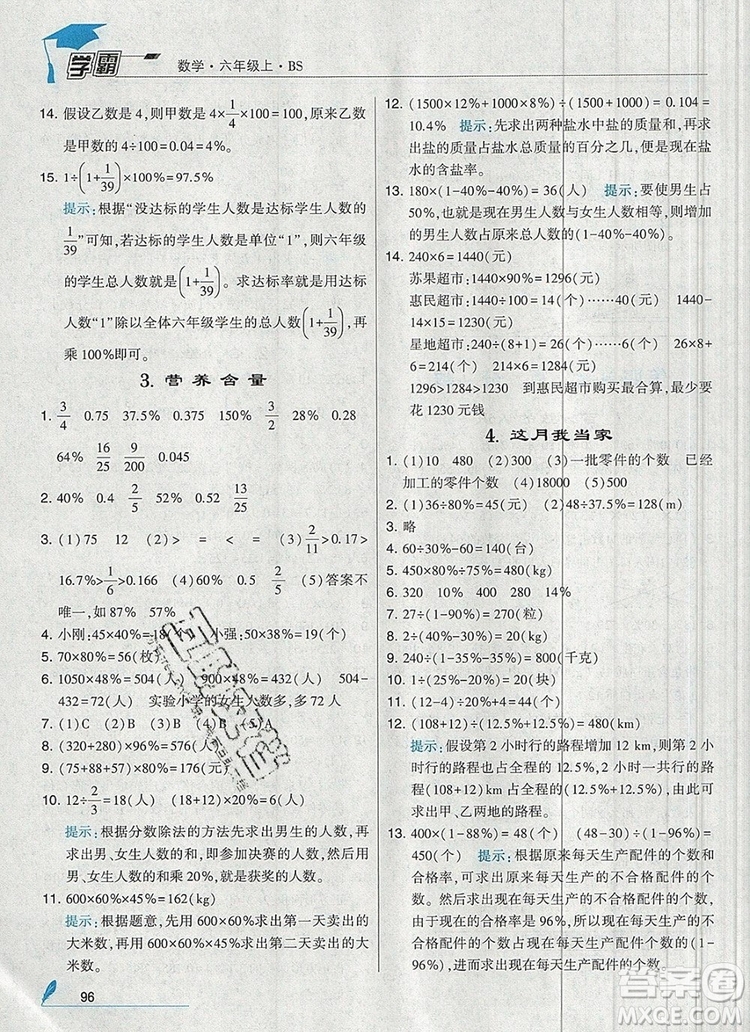 学霸
数学·六年级上·BS
14. 假设乙数是4,则甲数是4×1/4×100=100,原来乙数
是甲数的4÷100=0.04=4%。
15. 1÷(1+1/39)×100%=97.5%
提示:根据“没达标的学生人数是达标学生人数的
1/39”可知,若达标的学生人数是单位“1”,则六年级
的学生总人数就是(1+1/39)。求达标率就是用达标
人数“1”除以全体六年级学生的总人数(1+1/39),再
乘100%即可。
3. 营养含量
1. 3/4 0.75 37.5% 0.375 150% 3/2 28% 0.28
64% 16/25 9/200 0.045
2. 40% 0.4 2/5 52% 0.52 13/25
3. (1)75 12 (2)> = < = (3)2/11>0.17>
16.7%>1/6>0.166 (4)2/5 (5)答案不
唯一,如87% 57%
4. 小刚:45×40%=18(个) 小强:50×38%=19(个)
5. 70×80%=56(枚)
6. 1050×48%=504(人) 900×48%=432(人) 504-
432=72(人) 实验小学的女生人数多,多72人
7. (1)C (2)B (3)B (4)B (5)A
8. (320+280)×96%=576(人)
9. (75+88+57)×80%=176(人)
10. 12÷2/3=18(人) (18+12)×20%=6(人)
提示:根据分数除法的方法先求出男生的人数,根据
男、女生人数的和就可求出参加决赛的人数,最后用
男、女生人数的和乘20%,就是获奖的人数。
11. 600×60%×45%=162(kg)
提示:根据题意,先用600×60%求出第一天卖出的
大米数,再用600×60%×45%求出第二天卖出的大
米数。
12. (1500×12%+1000×8%)÷(1500+1000)=0.104=
10.4% 提示:先求出两种盐水中盐的质量和,再求
出盐的质量占盐水总质量的百分之几,即混合后盐
水的含盐率。
13. 180×(1-40%-40%)=36(人) 提示:要使男生占
50%,也就是现在男生人数与女生人数相等,则增加
的男生人数占原来总人数的(1-40%-40%)。
14. 240×6=1440(元)
苏果超市:1440×90%=1296(元)
惠民超市:240÷15=16(个)……0(个) 1440-
14×15=1230(元)
星地超市:240÷(8+1)=26(个)……6(个) 26×8+
6=214(个) 214×6=1284(元)
1296>1284>1230 到惠民超市购买最合算,最少要
花1230元钱
4. 这月我当家
1. (1)10 480 (2)300 (3)一批零件的个数 已经
加工的零件个数 (4)18000 (5)2.5
2. (1)36÷80%=45(元) (2)48÷37.5%=128(m)
3. 略
4. 60÷30%-60=140(台)
5. 450×80%÷75%=480(kg)
6. 320 10% 20% 40% 14%
7. 27÷(1-90%)=270(粒)
8. 2÷(1-20%-40%)=5(m)
9. 240÷(1-35%-35%)=800(千克)
10. 1÷(25%-20%)=20(块)
11. (12-4)÷20%+12=52(张)
12. (108+12)÷(12.5%+12.5%)=480(km)
提示:假设第2小时行的路程增加12 km,则第2小
时行的路程也占全程的12.5%,2小时行的路程
(108+12)km占全程的(12.5%+12.5%),由此可
求出甲、乙两地的路程。
13. 400×(1-88%)=48(个) (48-30)÷(1-96%)=
450(个) 提示:根据原来每天生产配件的个数和
合格率,可求出原来每天生产的不合格配件的个
数,然后可求出现在每天生产不合格配件的个数。
由于现在的合格率是96%,所以现在每天生产的不
合格配件的个数占现在每天生产配件个数的(1-
96%),进而求出现在每天生产配件的个数。
96
答案圈
MXQE.COM